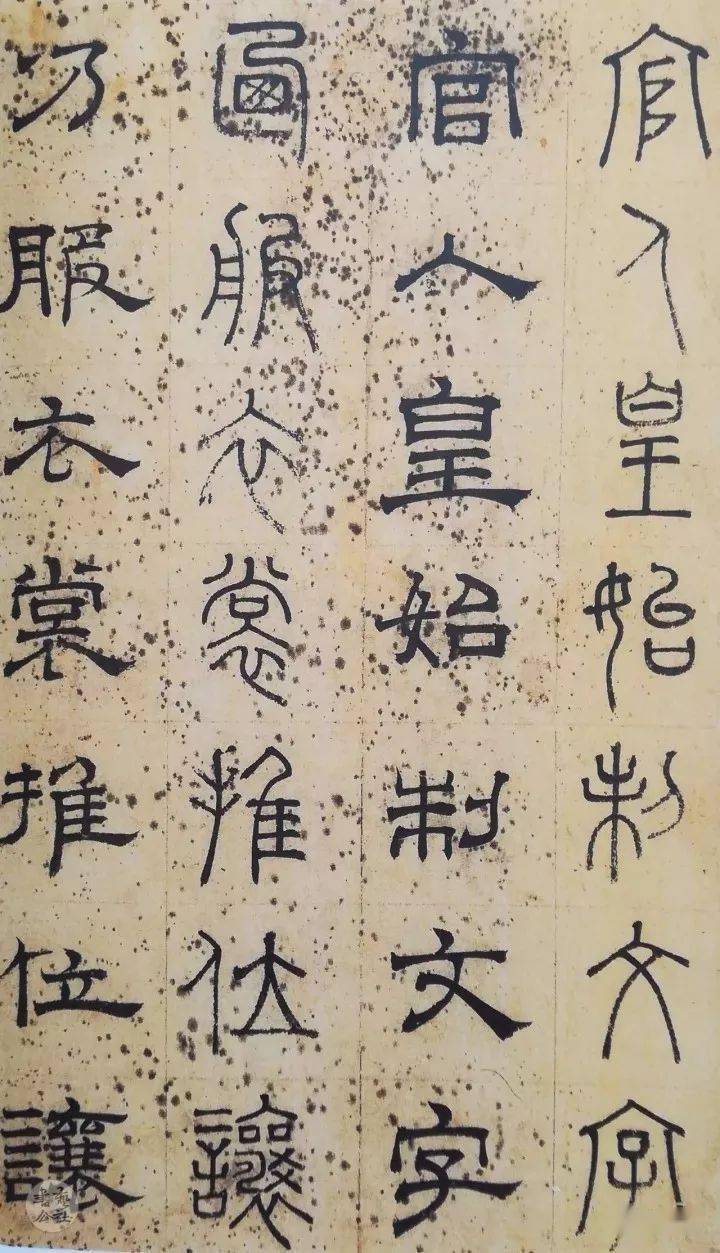 官人皇始制文字
官人皇始制文字
乃服衣裳推位讓
乃服衣裳推位讓